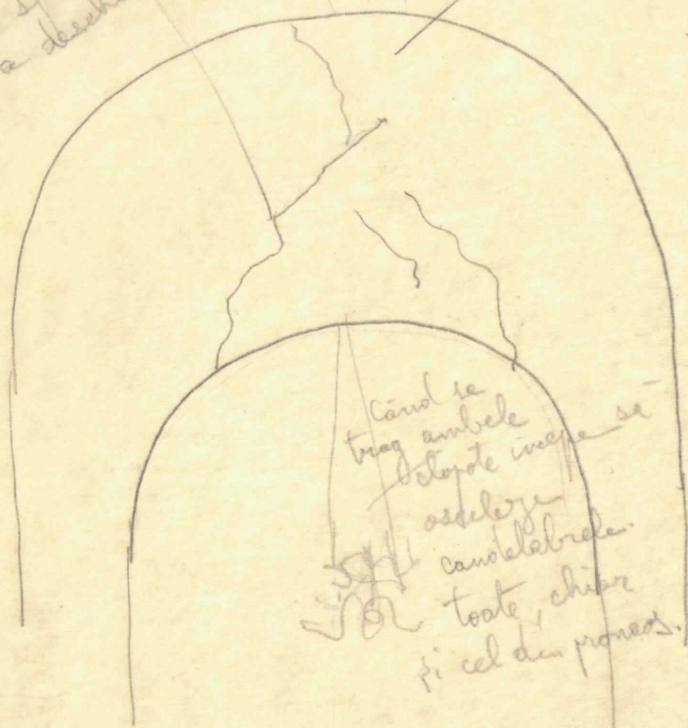 a deschi
Când se
trag ambele
clopote începe să
oscileze
candelabrele
toate, chiar
și cel din pronaos.